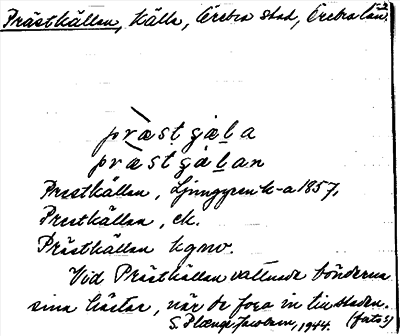 Prästkällan, Källa, Örebro stad, Örebro län.
præstgæla
præstgælan
Prestkällan, Ljunggren k-a 1857.
Prestkällan, ek.
Prästkällan hgnv.
Vid Prästkällan vattnade bönderna
sina hästar, när de foro in till staden.
S. Plænge Jacobson, 1944. (foto S)